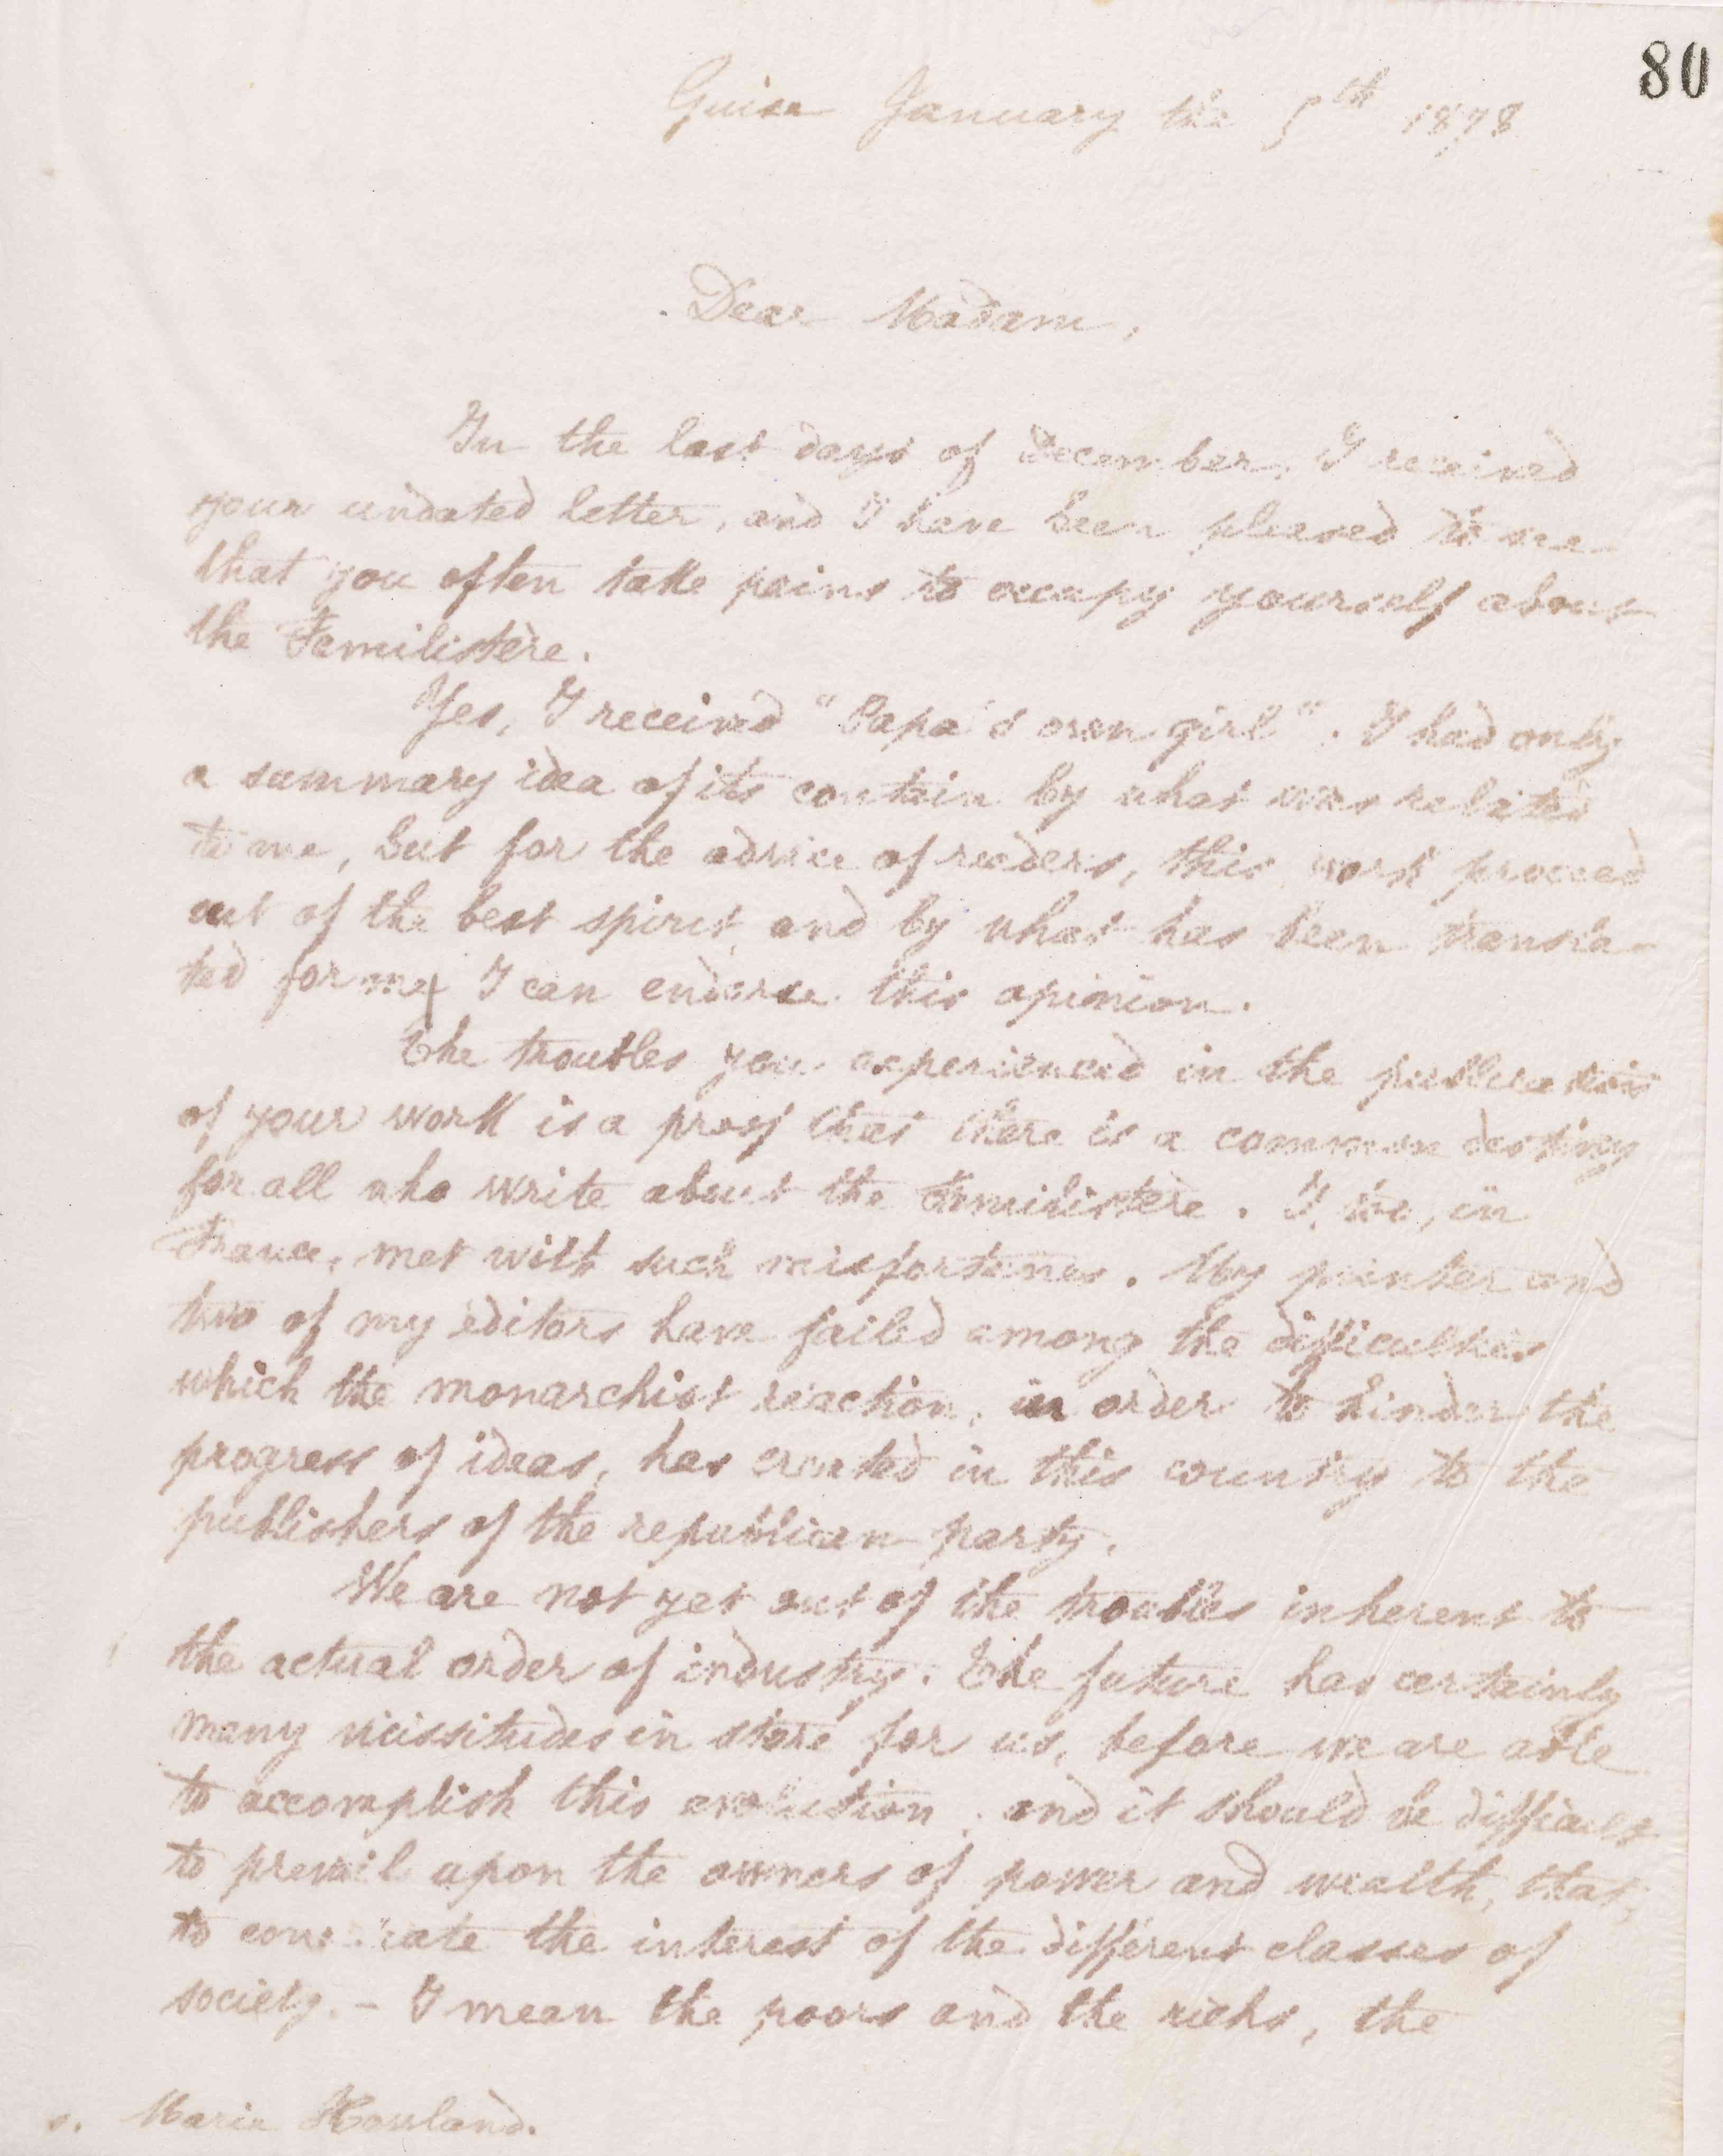 80
Guise January the 5th 1878
Dear Madam,
In the last days of December, I received
your undated letter, and I have been pleased to see
that you often take pains to occupy yourself about
the Familistère.
Yes, I received "Papa's own girl". I had only
a summary idea of its contain by what was related
to me, but for the advice of readers, this work proceed
out of the best spirit and by what has been transla-
ted for me, I can endorse this opinion.
The troubles you experienced in the publication
of your work is a proof that there is a common destiny
for all who write about the Familistère. I, too, in
France, met with such misfortunes. My printer and
two of my editors have failed among the difficulties
which the monarchist reaction, in order to hinder the
progress of ideas, has created in this country to the
publishers of the republican party.
We are not yet out of the troubles inherent to
the actual order of industry. The future has certainly
many vicissitudes in store for us, before we are able
to accomplish this evolution, and it should be difficult
to prevail upon the owners of power and wealth, that,
to the interest of the different classes of
society. - I mean the poors and the richs, the
Marie Howland.